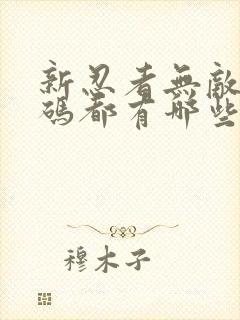 新忍者無敵
碼都有哪些
穆木子